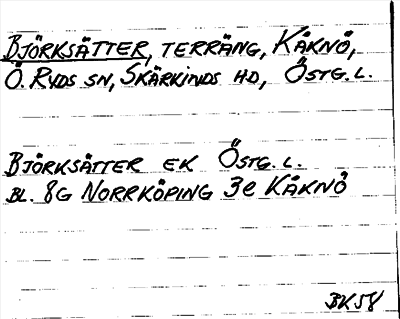 BJÖRKSÄTTER, TERRÄNG, KÅKNÖ,
Ö. RYDS SN, SKÄRKINDS HD, ÖSTG. L.
BJÖRKSÄTTER EK ÖSTG. L.
BL. 8G NORRKÖPING 3e KÅKNÖ
BK58